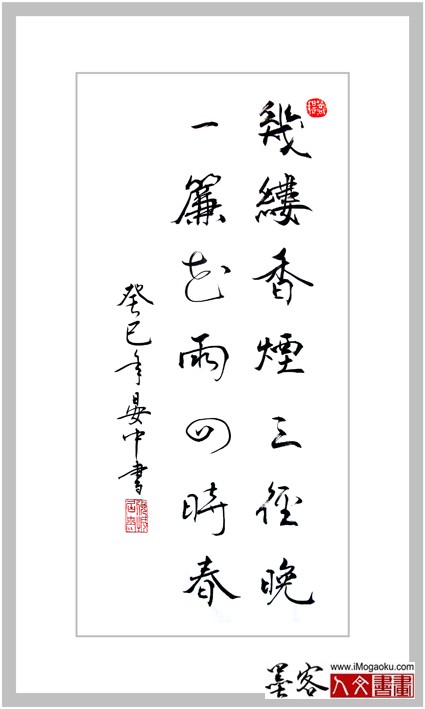 幾縷香煙三徑晚
一簾花雨四時春
癸巳年晏中書
墨客
www.iMogaoku.com
人文書畫